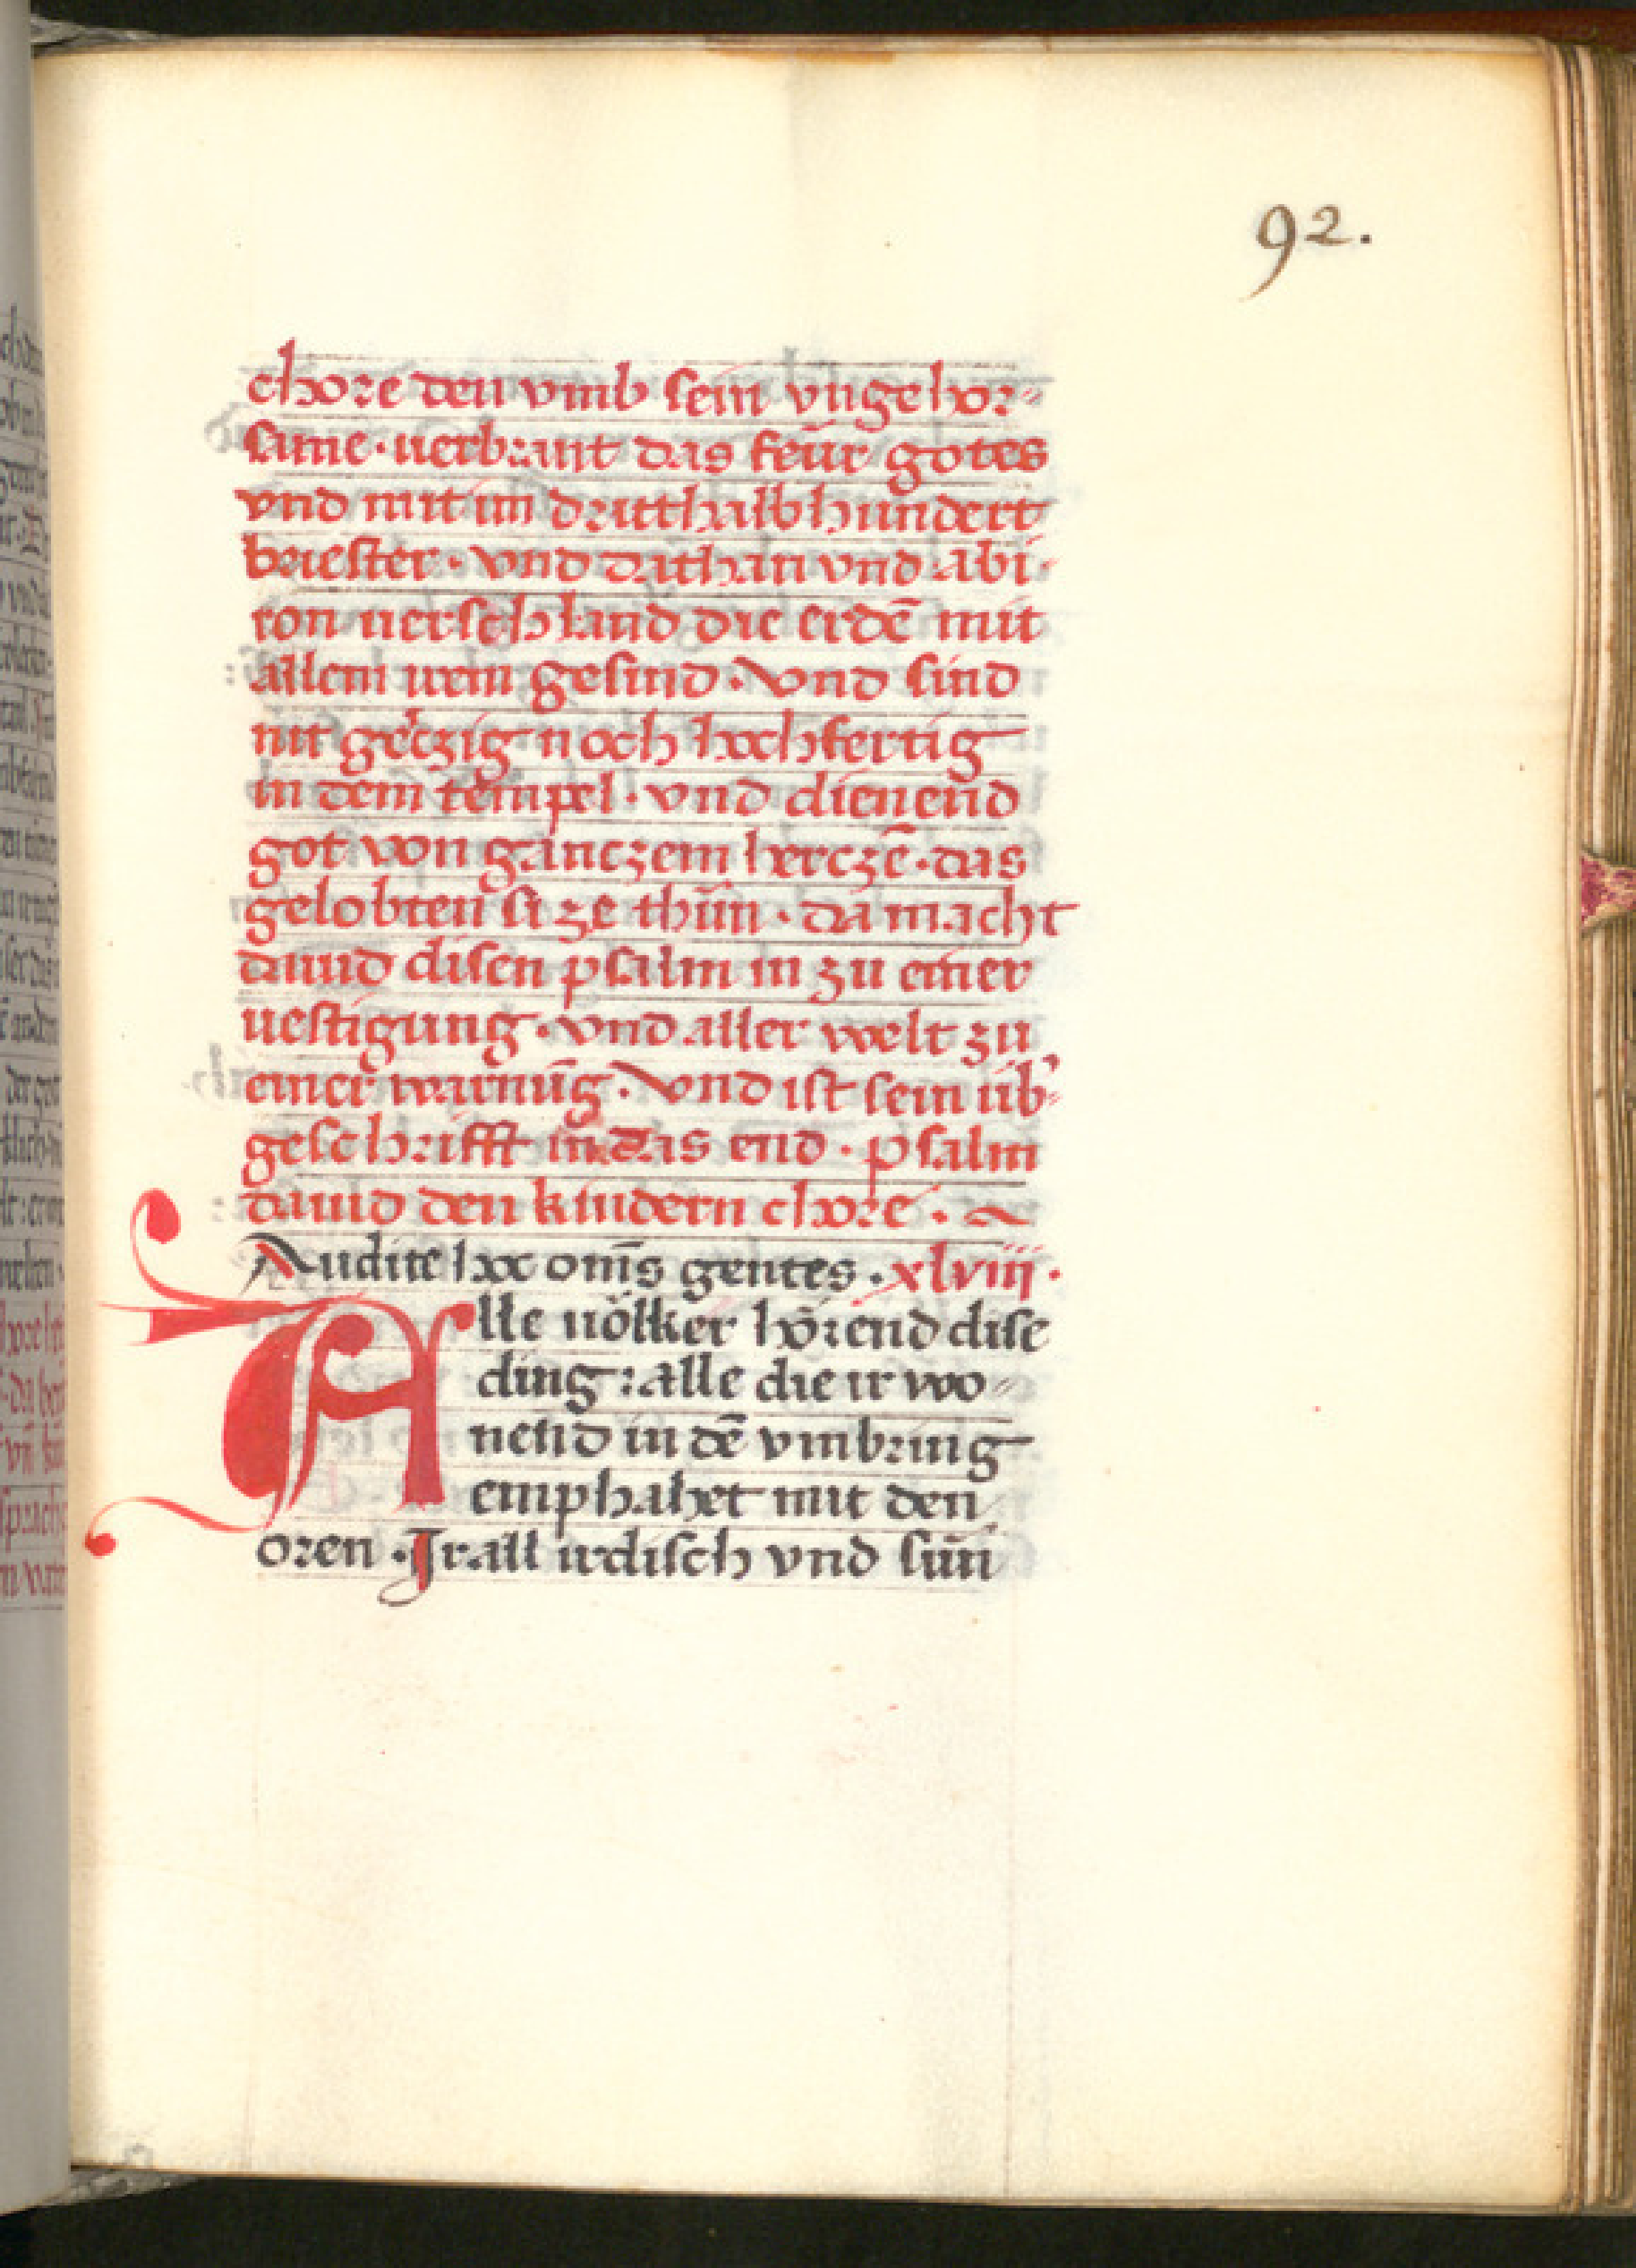 92.
chore den vmb sein vngehor⸗
same · uerbrant das feür gotes
vnd mit im dritthalbhundert
briester · vnd dathan vnd abi⸗
ron uerschland die erdē mit
allem irem gesind · Vnd sind
nit geiczig noch hochfertig
in dem tempel · vnd dienend
got von ganczem herczē · das
gelobten si ze thůn · da macht
dauid disen psalm in zu einer
uestigung · vnd aller welt zu
einer warnūg · Vnd ist sein üb'⸗
geschrifft in das end · psalm
dauid den kindern chore ·
Audite hec om̄s gentes · xlviii ·
Alle uölker hörend dise
ding : alle die ir wo⸗
nend in dē vmbring
emphahet mit den
oren · Ir all irdisch vnd sün